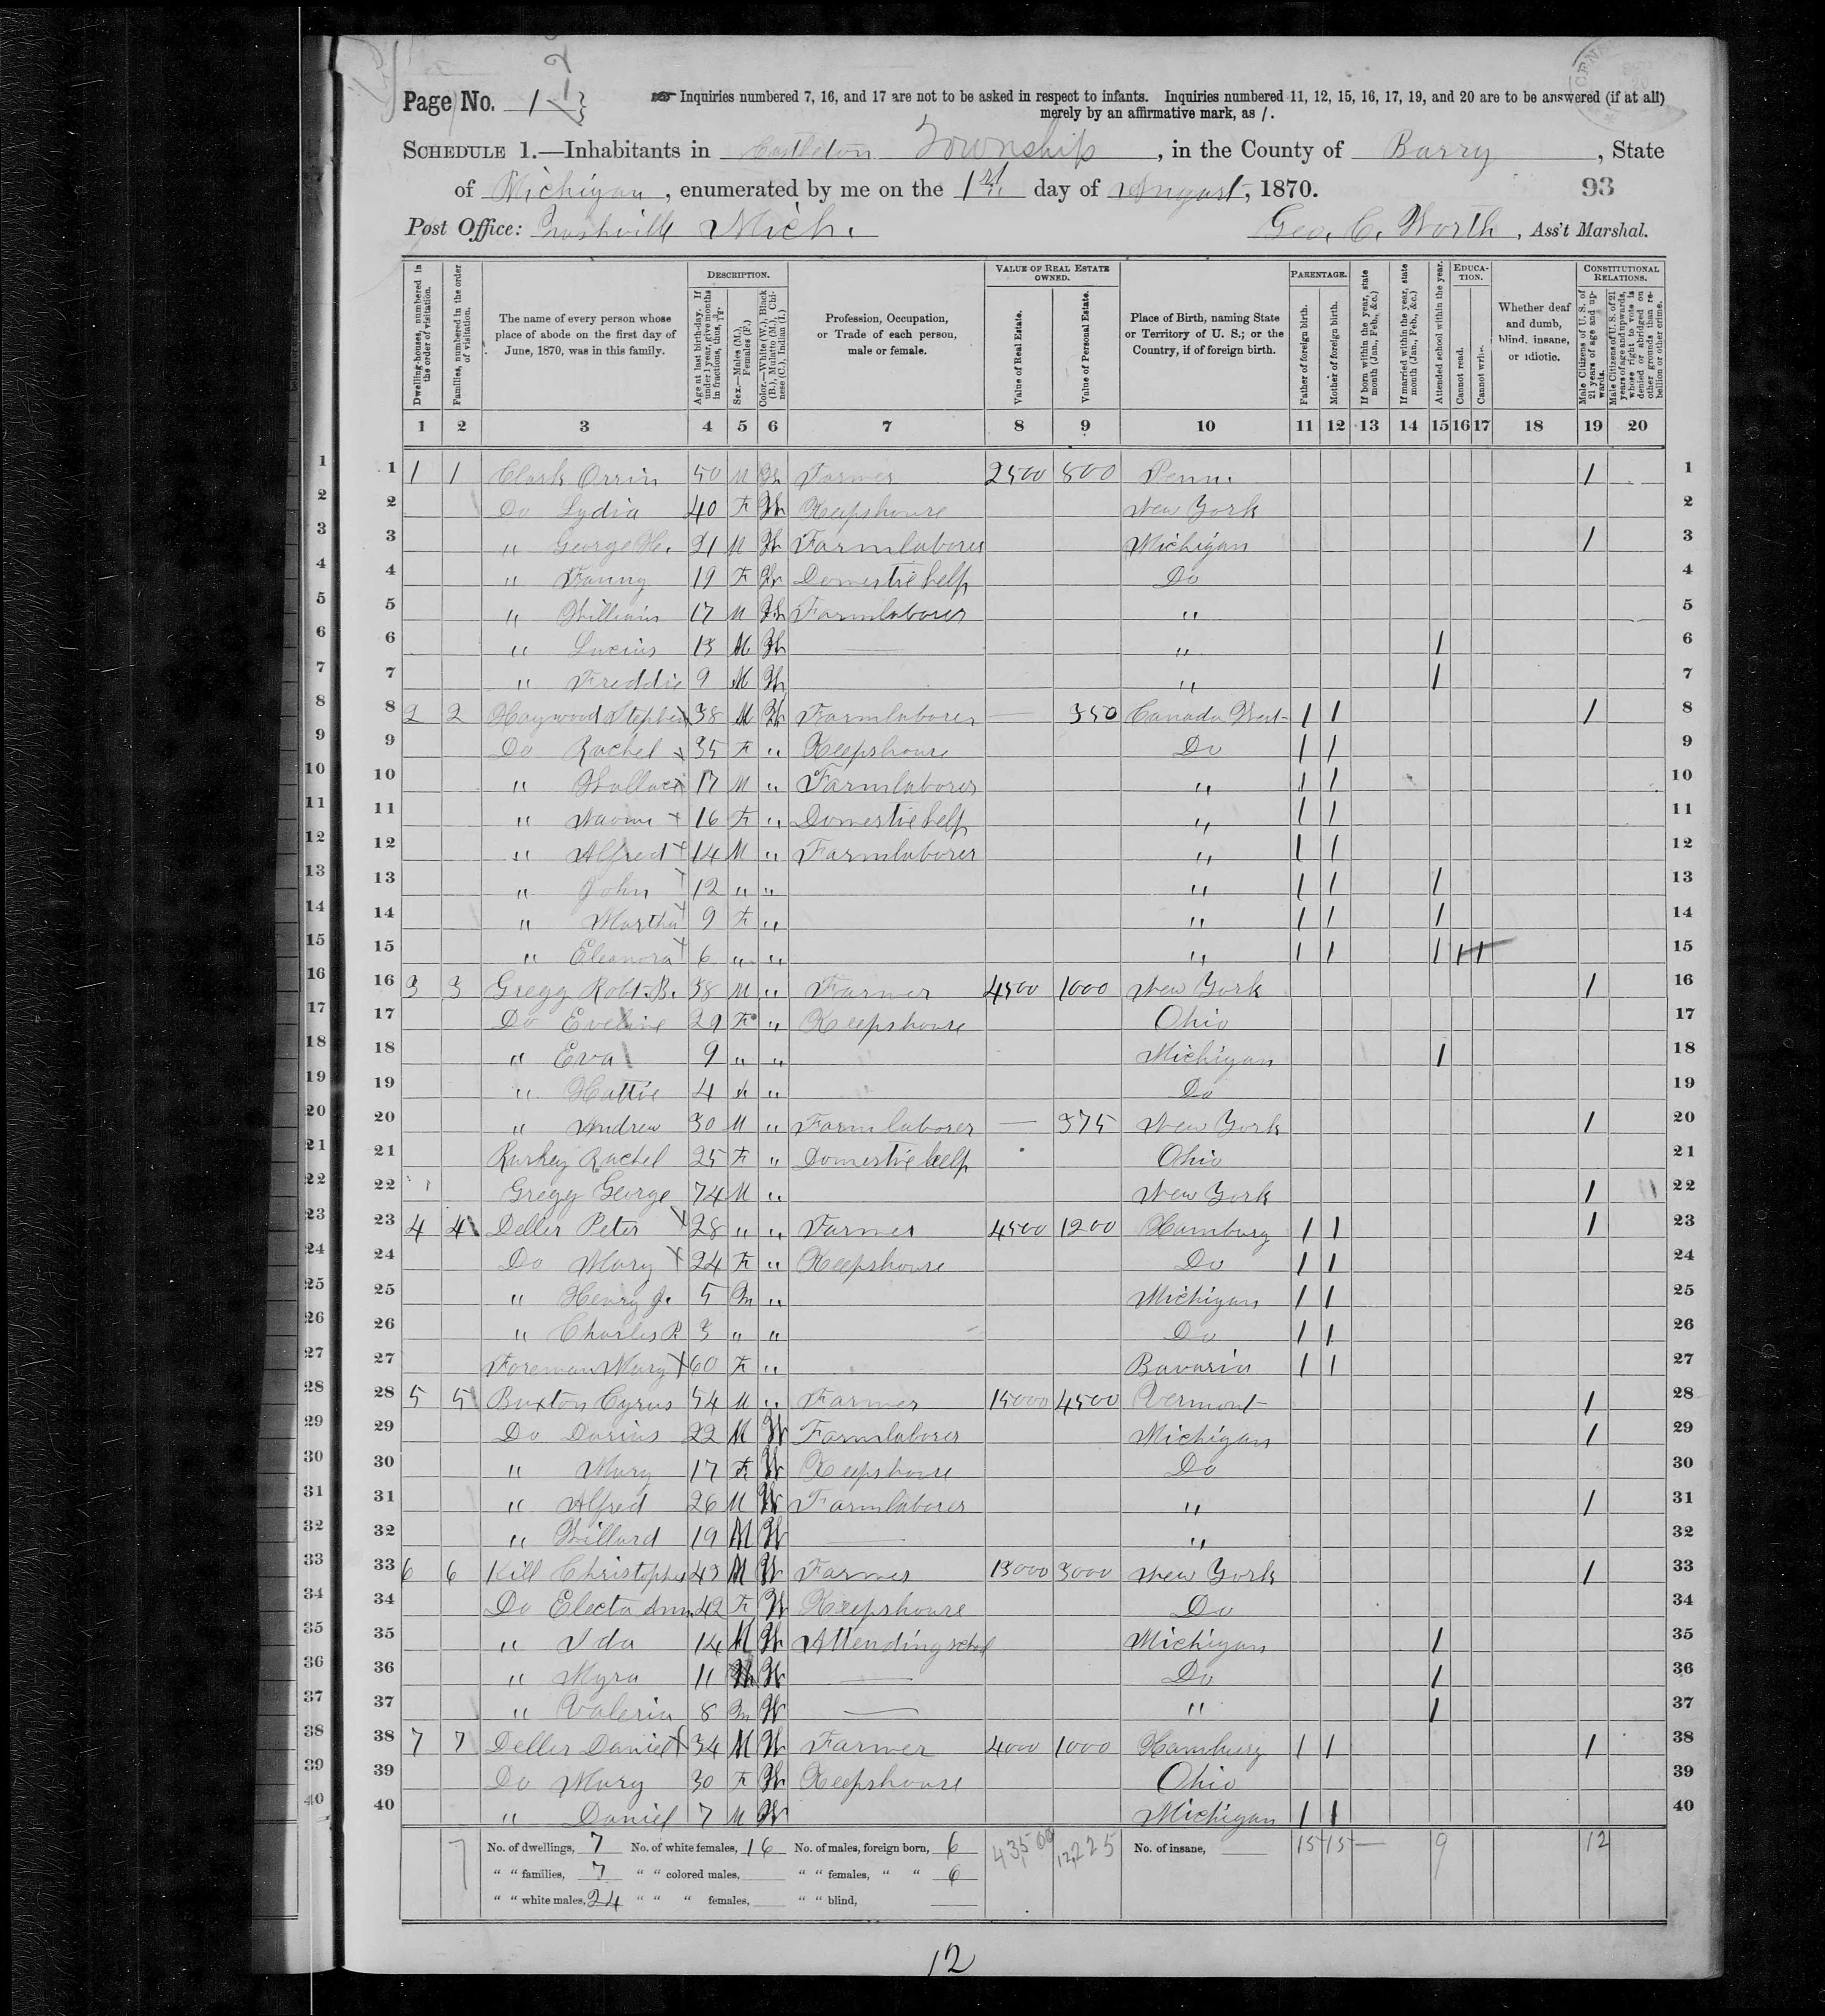 Page No. 1
Inquiries numbered 7, 16, and 17 are not to be asked in respect to infants. Inquiries numbered 11, 12, 15, 16, 17, 19, and 20 are to be answered (if at all)
merely by an affirmative mark, as /.
SCHEDULE 1.—Inhabitants in Castleton Township, in the County of Barry, State
of Michigan, enumerated by me on the 1st day of August, 1870. 93
Post Office: Nashville Mich. Geo. C. Worth, Ass't Marshal.
DESCRIPTION. VALUE OF REAL ESTATE OWNED. PARENTAGE. EDUCATION. CONSTITUTIONAL RELATIONS.
Dwelling-houses, numbered in the order of visitation.
Families, numbered in the order of visitation.
The name of every person whose place of abode on the first day of June, 1870, was in this family.
Age at last birth-day. If under 1 year, give months in fractions, thus, 3/12.
Sex.—Males (M.), Females (F.)
Color.—White (W.), Black (B.), Mulatto (M.), Chinese (C.), Indian (I.)
Profession, Occupation, or Trade of each person, male or female.
Value of Real Estate.
Value of Personal Estate.
Place of Birth, naming State or Territory of U. S.; or the Country, if of foreign birth.
Father of foreign birth.
Mother of foreign birth.
If born within the year, state month (Jan., Feb., &c.)
If married within the year, state month (Jan., Feb., &c.)
Attended school within the year.
Cannot read.
Cannot write.
Whether deaf and dumb, blind, insane, or idiotic.
Male Citizens of U. S. of 21 years of age and upwards.
Male Citizens of U. S. of 21 years of age and upwards, whose right to vote is denied or abridged on other grounds than rebellion or other crime.
1 2 3 4 5 6 7 8 9 10 11 12 13 14 15 16 17 18 19 20
1 1 1 Clark Orrin 50 M W Farmer 2500 800 Penn. / 1
2 Do Lydia 40 F W Keepshouse New York 2
3 " George H. 21 M W Farmlaborer Michigan / 3
4 " Fanny 19 F W Domestic help Do 4
5 " William 17 M W Farmlaborer " 5
6 " Lucius 13 M W — " / 6
7 " Freddie 9 M W " / 7
8 2 2 Haywood Stephen 38 M W Farmlaborer — 350 Canada West / / / 8
9 Do Rachel 35 F " Keepshouse Do / / 9
10 " Wallace 17 M " Farmlaborer " / / 10
11 " Naomi 16 F " Domestic help " / / 11
12 " Alfred 14 M " Farmlaborer " / / 12
13 " John 12 " " " / / / 13
14 " Martha 9 F " " / / / 14
15 " Eleanora 6 " " " / / / / / 15
16 3 3 Gregg Robt. B. 38 M " Farmer 4500 1000 New York / 16
17 Do Eveline 29 F " Keepshouse Ohio 17
18 " Eva 9 " " Michigan / 18
19 " Hattie 4 " " Do 19
20 " Andrew 30 M " Farmlaborer — 375 New York / 20
21 Rachel 25 F " Domestic help Ohio 21
22 Gregg George 74 M " New York / 22
23 4 4 Deller Peter 28 " " Farmer 4500 1200 Hamburg / / / 23
24 Do Mary 24 F " Keepshouse Do / / 24
25 " Henry J. 5 M " Michigan / / 25
26 " Charles P. 3 " " Do / / 26
27 Foreman Mary 60 F " Bavaria / / 27
28 5 5 Buxton Cyrus 54 M " Farmer 15000 4500 Vermont / 28
29 Do Darius 22 M W Farmlaborer Michigan / 29
30 " Mary 17 F W Keepshouse Do 30
31 " Alfred 26 M W Farmlaborer " / 31
32 " Willard 19 M W — " 32
33 6 6 Kill Christopher 43 M W Farmer 13000 3000 New York / 33
34 Do Electa Ann 42 F W Keepshouse Do 34
35 " Ida 14 M W Attending school Michigan / 35
36 " Myra 11 M W — Do / 36
37 " Valeria 8 M W — " / 37
38 7 7 Deller Daniel 34 M W Farmer 4000 1000 Hamburg / / / 38
39 Do Mary 30 F W Keepshouse Ohio 39
40 " Daniel 7 M W Michigan / / 40
No. of dwellings, 7 No. of white females, 16 No. of males, foreign born, 6 43,500 12,225 No. of insane, 15 15 — 9 12
" " families, 7 " " colored males, " " females, " " 6
" " white males, 24 " " " females, " " blind,
12